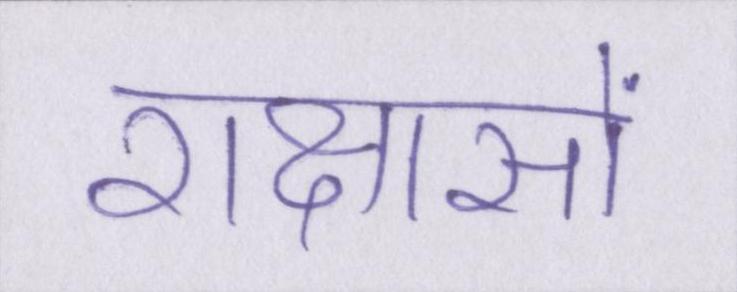 राक्षासों